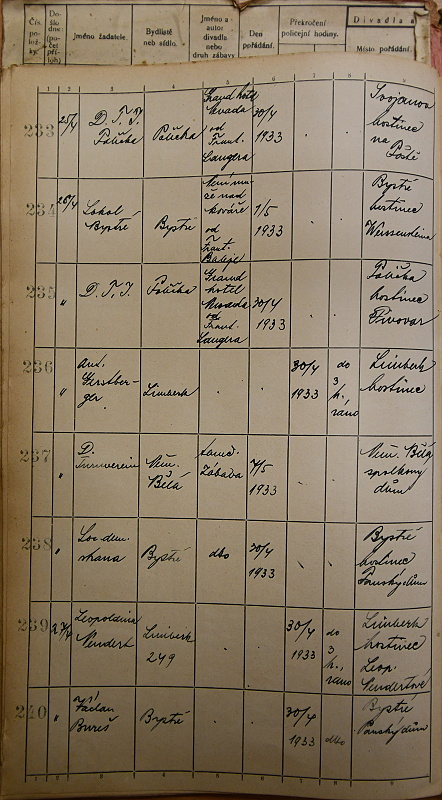 Čís. položky:
Došlo dne: (počet příloh)
Jméno žadatele.
Bydliště neb sídlo.
Jméno a autor divadla nebo druh zábavy
Den pořádání.
Překročení policejní hodiny.
Divadla a
Místo pořádání.
1 2 3 4 5 6 7 8 9
233
25/4
D. T. J.
Polička
Polička
Grand hotel
Nevada
od
Frant.
Langra
30/4
1933
Svojanov
hostinec
na
Poště
234
26/4
Sokol
Bystré
Bystré
Není mu-
že nad
kováře
od
Frant.
1/5
1933
Bystré
hostinec
235
"
D. T. J.
Polička
Grand
hotel
Nevada
od
Frant.
Langra
30/4
1933
Polička
hostinec
Pivovar
236
"
Ant.
Gerstber-
ger
Limberk
30/4
1933
do
3
h.
ráno
Limberk
hostinec
237
"
D.
Turnverein
Něm.
Bělá
taneč.
zábava
7/5
1933
Něm. Bělá
spolkový
dům
238
"
Soc. dem.
strana
Bystré
dto
30/4
1933
Bystré
hostinec
Panský dům
239
27/4
Leopoldina
Limberk
249
30/4
1933
do
3
h.
ráno
Limberk
hostinec
Leop.
240
"
Václav
Bureš
Bystré
30/4
1933
dto
Bystré
Panský dům